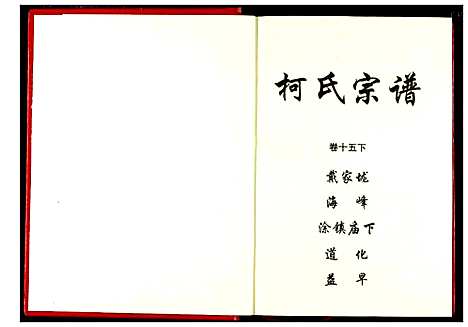 柯氏宗谱
卷十五下
戴家垅
海峰
涂镇庙下
道化
益早